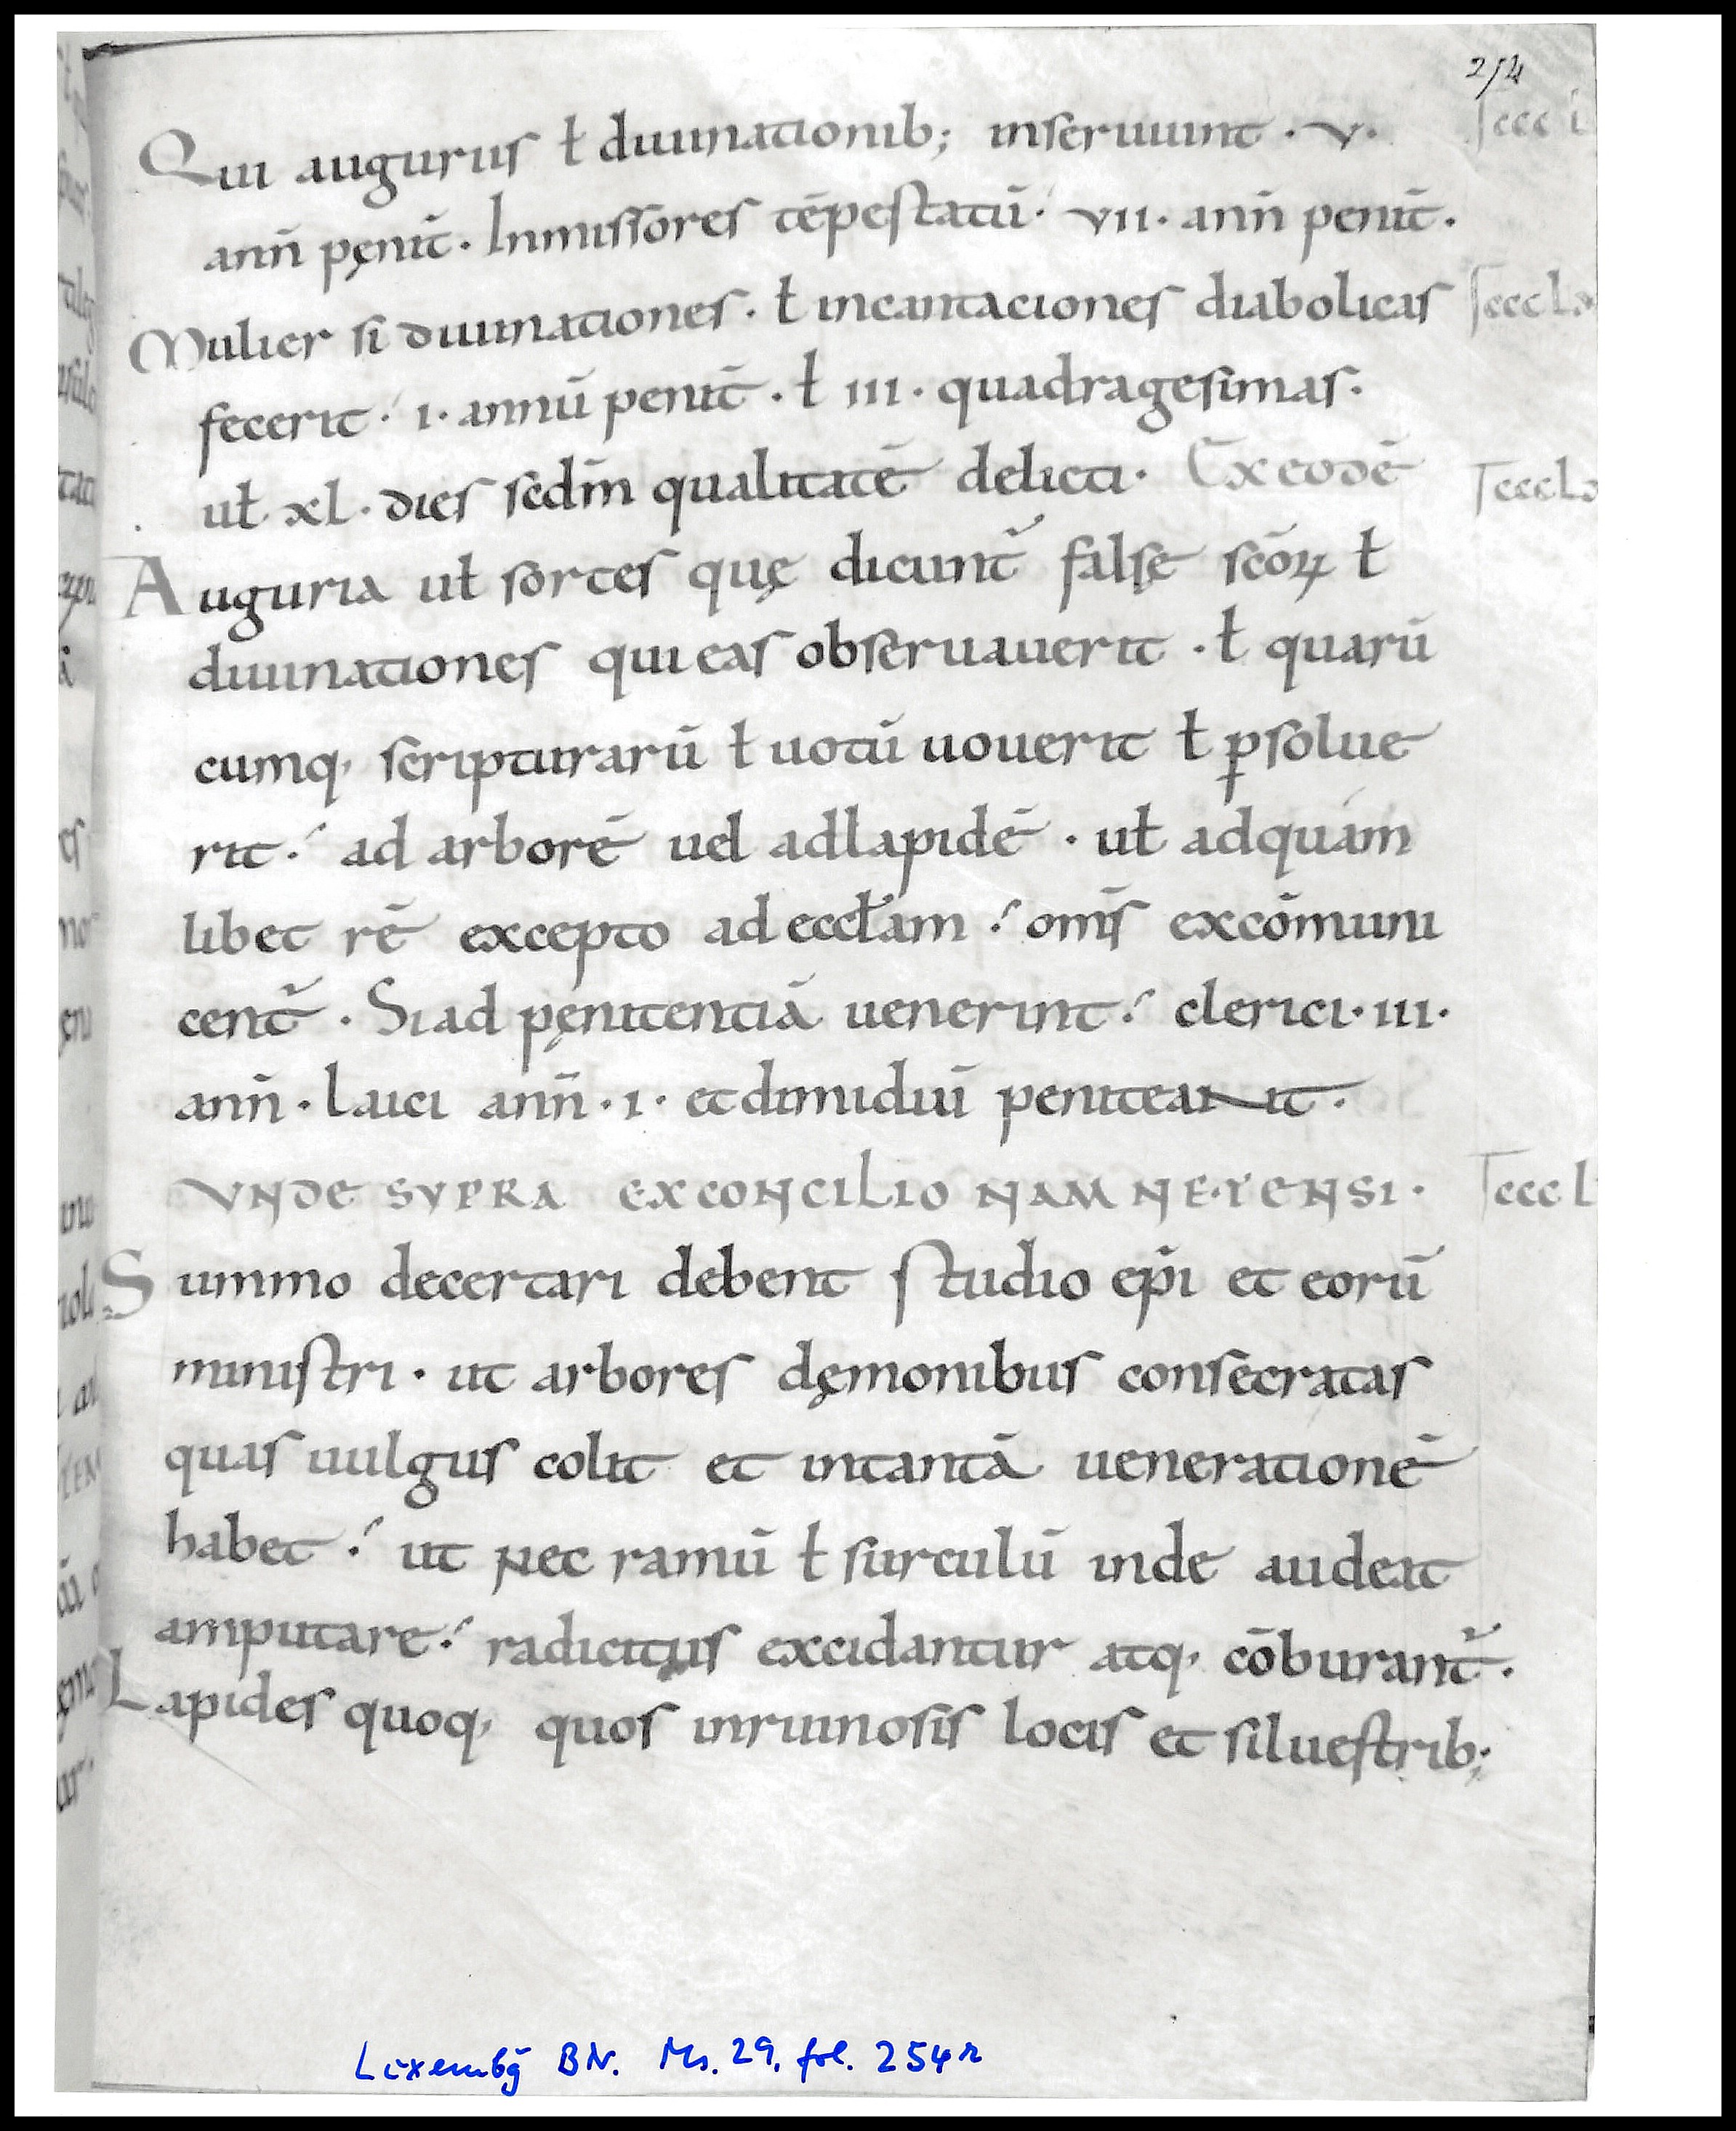 254
Qui auguriis ł diuinationib; inseruiunt · v · Tccc l
ann̄ pęnit̄ · Inmissores tēpestatū · vii · ann̄ penit̄ ·
Mulier si diuinationes · ł incantaciones diabolicas Tcccl
fecerit · i · annū penit̄ · ł iii · quadragesimas ·
uł xl · dies scd̄m qualitatē delicti · Ex eodē Tcccl
Auguria uł sortes quę dicunt̄ falsę scōꝝ ł
diuinationes qui eas obseruauerit · ł quarū
cumq, scripturarū ł uotū uouerit ł ꝑsolue
rit · ad arborē uel adlapidē · uł adquam
libet rē excepto ad eccłam · om̄s excōmuni
cent̄ · Si ad pęnitentiā uenerint · clerici · iii ·
ann̄ · laici ann̄ · i · et dimidiū peniteant ·
VNDE SVPRA EX CONCILIO NAMNETENSI · Tccc l
Summo decertari debent studio ep̄i et eorū
ministri · ut arbores dęmonibus consecratas
quas uulgus colit et intantā uenerationē
habet · ut nec ramū ł surculū inde audeat
amputare · radicitus excidantur atq, cōburant̄ ·
Lapides quoq, quos inruinosis locis et siluestrib;
Luxembḡ BN. Ms. 29, fol. 254r